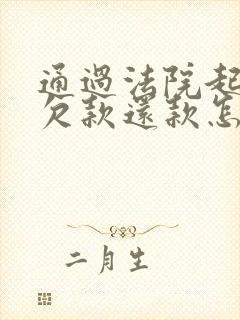 通過法院起
欠款還款怎
二月生